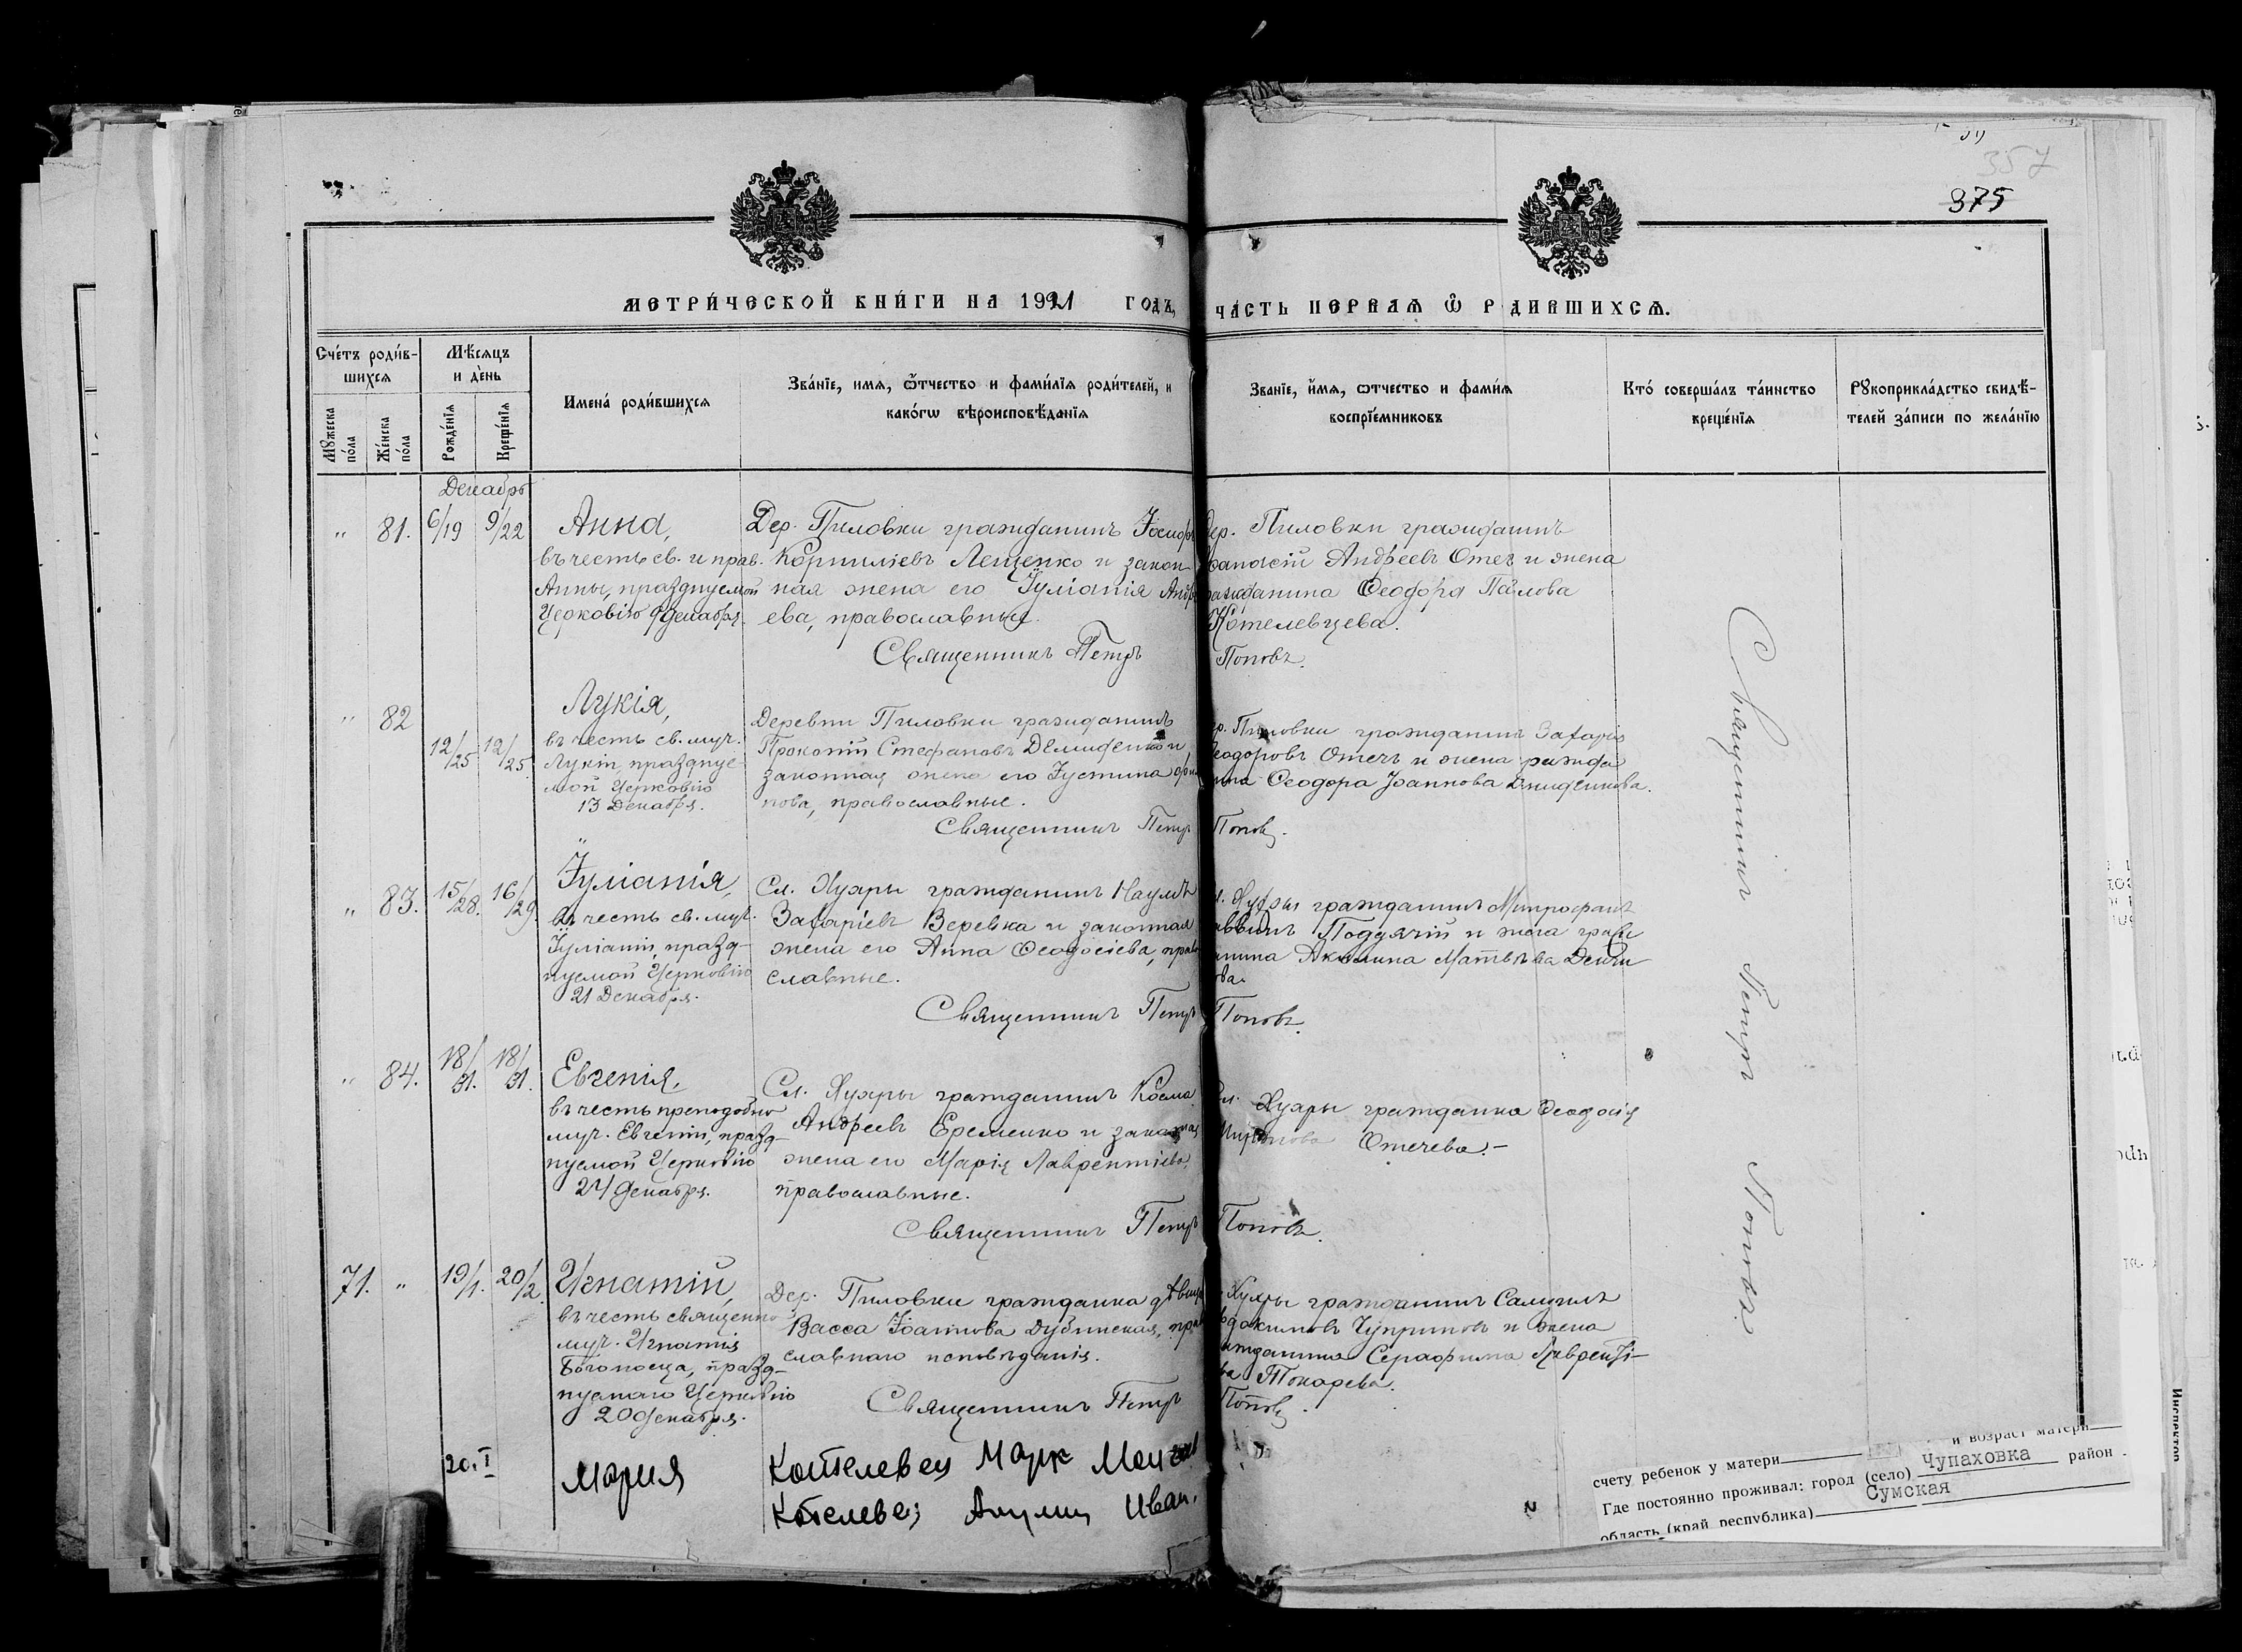 357
375
МЕТРИ́ЧЕСКОЙ КНИ́ГИ НА 1921 ГОДЪ, ЧА́СТЬ ПЕРВАЯ Ѿ РДИВШИХСЯ.
Сче́тъ роди́вшихся
Мꙋ́жеска по́ла
Же́нска по́ла
Мѣ́сяцъ и де́нь
Рожде́нїя
Креще́нїя
Имена́ роди́вшихся
Зва́нїе, имя, ѻтчество и фами́лїя роди́телей, и како́гѡ вѣроисповѣ́данїя
Званїе, и́мя, ѻтчество и фами́я воспрїе́мниковъ
Кто́ соверша́лъ та́инство креще́нїя
Рꙋкоприкла́дство свидѣ́телей за́писи по жела́нїю
Декабрь
„ 81. 6/19 9/22
Анна,
въ честь св. и прав.
Анны, празднуемой
Церковію 9 декабря.
Дер. Пиловки гражданинъ Іосифъ
Корниліевъ Лещенко и закон-
ная жена его Іуліанія Андре
ева, православные.
Священникъ Петръ
Дер. Пиловки гражданинъ
Андреевъ Отеч и жена
гражданина Ѳеодора Павлова
Котелевцева.
Поповъ.
„ 82 12/25 12/25.
Лукія,
въ честь св. муч.
Лукіи, праздну-
мой Церковію
13 Декабря.
Деревни Пиловки гражданинъ
Прокопій Стефановъ Демиденко и
законная жена его Іустина
нова, православные.
Священникъ Петръ
Пиловки гражданинъ Захарія
Ѳеодоровъ Отечъ и жена
Ѳеодора Іоаннова
Поповъ.
„ 83. 15/28. 16/29.
Іуліанія,
въ честь св. муч.
Іуліаніи, празд-
нуемой Церковію
21 Декабря.
Сл. Хухры гражданинъ Наумъ
Захаріевъ Веревка и законная
жена его Анна Ѳеодосіева, право
славные.
Священникъ Петръ
Хухры гражданинъ Митрофанъ
и жена
Акилина
Поповъ.
„ 84. 18/31. 18/31.
Евгенія,
въ честь преподобно
муч. Евгеніи, празд-
нуемой Церковію
24 декабря.
Сл. Хухры гражданинъ Косма
Андреевъ Еременко и законная
жена его Марія Лаврентіева,
православные.
Священникъ Петръ
Сл. Хухры гражданка Ѳеодосія
Отечева.–
Поповъ.
71. „ 19/1. 20/2.
Игнатій,
въ честь священно
муч. Игнатія
Богоносца, празд-
нуемаго Церковію
20 декабря.
Дер. Пиловки гражданка дѣвица
Васса Іоаннова Дубинская, право
славнаго исповѣданія.
Священникъ Петръ
Хухры гражданинъ Самуилъ
Чуприновъ и жена
гражданина Серафима Лаврентi-
ва Токарева.
Поповъ.
Священникъ Петръ Поповъ
20. I
Мария
Котелевец Марк
Котелевец Иван.
и возраст матери
счету ребенок у матери
Где постоянно проживал: город (село) Чупаховка район
Сумская
область (край республика)
Инспектор